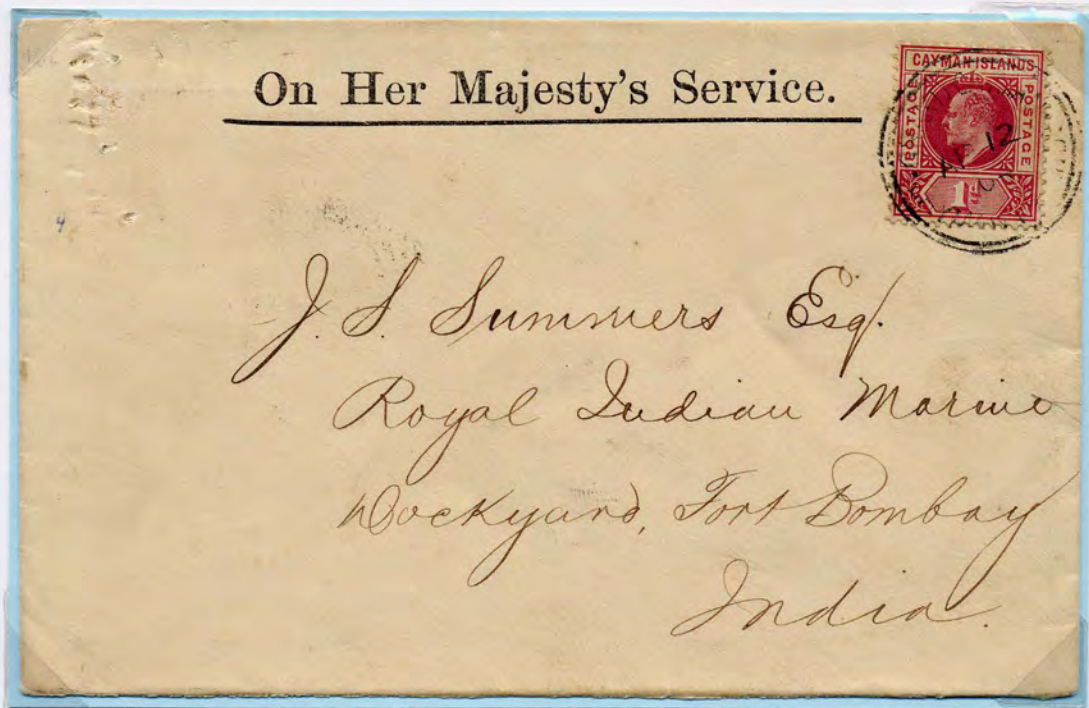 On Her Majesty's Service.
CAYMAN ISLANDS
POSTAGE
POSTAGE
1d
12
4
J. S. Summers Esq.
Royal Indian Marine
Dockyard, Fort Bombay
India.